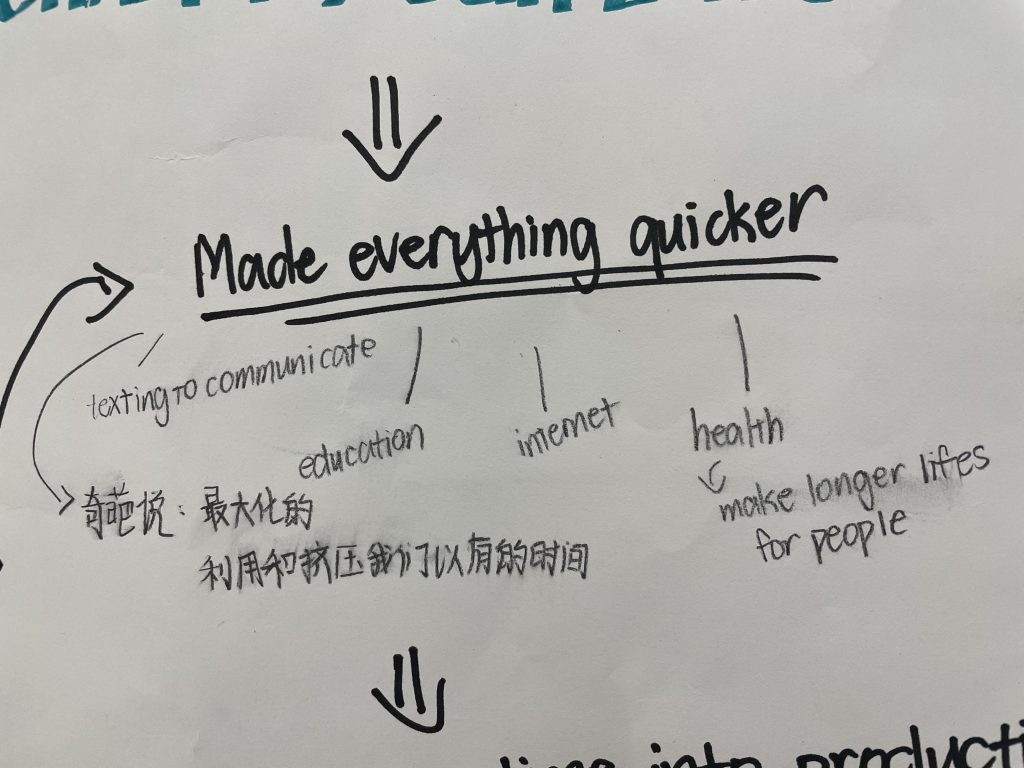 Made everything quicker
texting to communicate
education
internet
health
make longer lifes
for people
奇葩说：最大化的
利用和挤压我们以有的时间
into producti